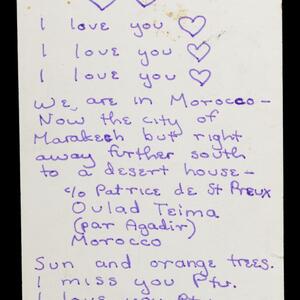 I love you ♡
I love you ♡
I love you ♡
We are in Morocco -
Now the city of
Marakech but right
away further south
to a desert house -
c/o Patrice de St Preux
Oulad Teima
(par Agadir)
Morocco
Sun and orange trees.
I miss you Ptr.
I love you Ptr.